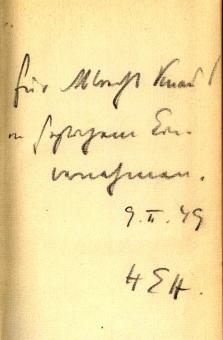 für Albrecht Knaus
in Ein-
vernehmen.
9. II. 49
HEH.